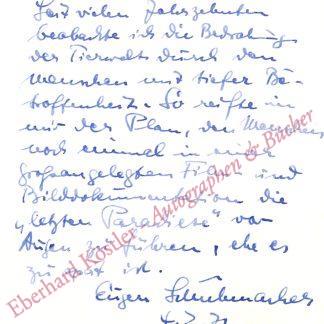 Seit vielen Jahrzehnten
beobachte ich die Bedrohung
der Tierwelt durch den
Menschen mit tiefer Be-
troffenheit. So reifte in
mir der Plan, den Menschen
noch einmal in einer
großangelegten Film und
Bilddokumentation die
„letzten Paradiese" vor
Augen zu führen, ehe es
zu spät ist.
Eugen Schuhmacher
Eberhard Köstler - Autographen & Bücher